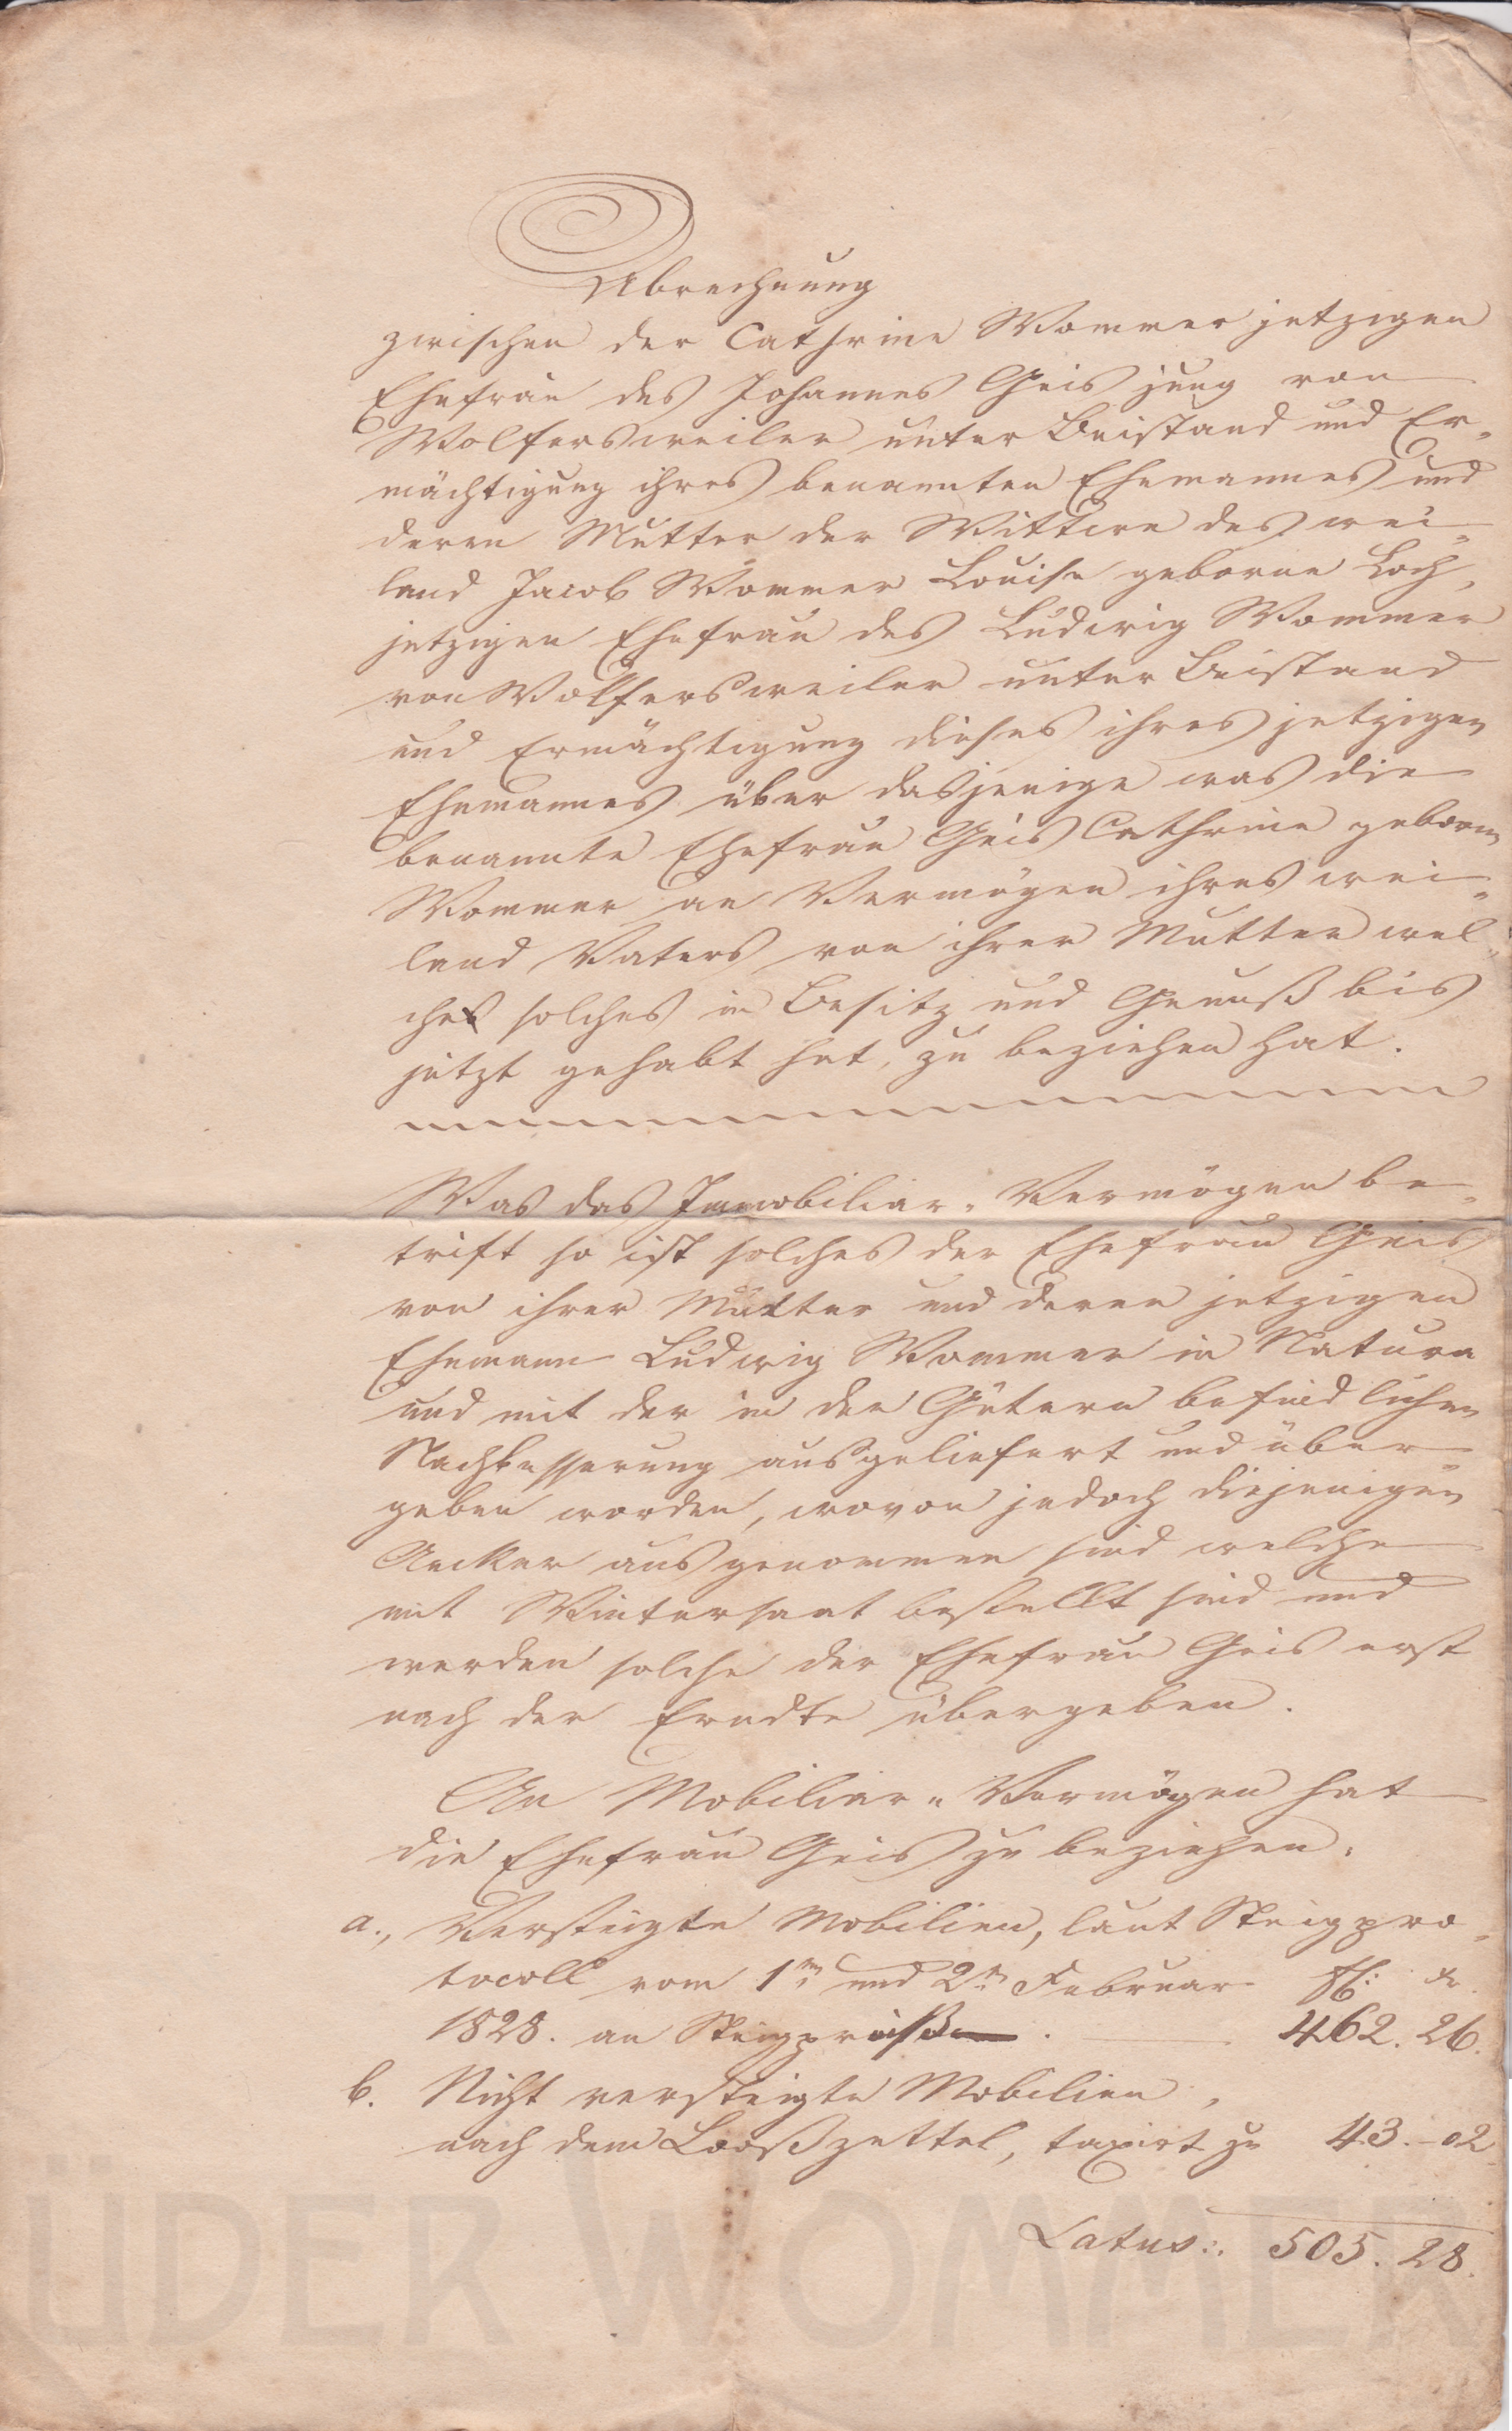 Abrechnung
zwischen der Cathrine Wommer jetzigen
Ehefrau des Johannes Geis jung von
Wolfersweiler unter Beistand und Er-
mächtigung ihres benannten Ehemannes und
deren Mutter der Wittwe des wei-
land Jacob Wommer Louise geborne Loch,
jetzigen Ehefrau des Ludwig Wommer
von Wolfersweiler unter Beistand
und Ermächtigung dieses ihres jetzigen
Ehemannes über dasjenige was die
benannte Ehefrau Geis Cathrine geborne
Wommer an Vermögen ihres wei-
land Vaters von ihrer Mutter wel-
ches solches in Besitz und Genuß bis
jetzt gehabt hat, zu beziehen hat.
Was das Immobiliar-Vermögen be-
trift so ist solches der Ehefrau Geis
von ihrer Mutter und deren jetzigen
Ehemann Ludwig Wommer in Natura
und mit der in den Gütern befindlichen
Nachbesserung ausgeliefert und über-
geben worden, wovon jedoch diejenigen
Aecker ausgenommen sind welche
mit Wintersaat bestellt sind und
werden solche der Ehefrau Geis erst
nach der Erndte übergeben.
An Mobiliar-Vermögen hat
die Ehefrau Geis zu beziehen.
a., Versteigte Mobilien, laut Steigpro-
tocoll vom 1ten und 2ten Februar fl: xr
1828. an Steigpreißen . 462. 26.
b. Nicht versteigte Mobilien,
nach dem Looßzettel, taxirt zu 43.-02
Latus:. 505. 28.
ÜDER WOMMER